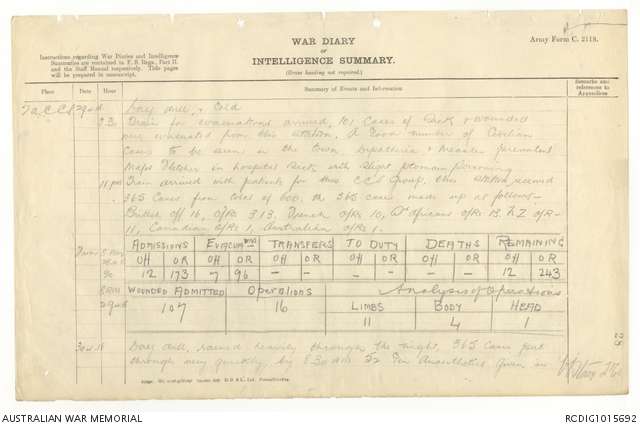 Army Form C. 2118.
WAR DIARY
OR
INTELLIGENCE SUMMARY.
(Erase heading not required.)
Instructions regarding War Diaries and Intelligence
Summaries are contained in F. S. Regs., Part II.
and the Staff Manual respectively. Title pages
will be prepared in manuscript.
Place Date Hour Summary of Events and Information Remarks and references to Appendices
Day dull, & Cold
2.30 Train for evacuations arrived, 101 Cases of Sick & wounded
were evacuated from this station. A Good number of Civilian
Cases to be seen in the town, Diphtheria & Measles prevalent
Major Fletcher in hospital sick with Short ptomain poisoning
11 pm Train arrived with patients for this CCS Group, this station received
365 Cases from total of 600. The 365 cases made up as follows -
British Off 16, O/Rs 313, French O/Rs 10, O/Rs 13, NZ O/R-
11, Canadian O/Rs 1, Australian O/Rs 1.
ADMISSIONS EVACUATIONS TRANSFERS TO DUTY DEATHS REMAINING
Off OR Off OR Off OR Off OR Off OR Off OR
12 173 7 96 - - - - - - 12 243
WOUNDED ADMITTED Operations Analysis of Operations
107 16 LIMBS BODY HEAD
11 4 1
Day dull, rained heavily through the night, 365 Cases put
through very quickly by 8.30 am 52 Gen Anaesthetics given in
AUSTRALIAN WAR MEMORIAL
RCDIG1015692